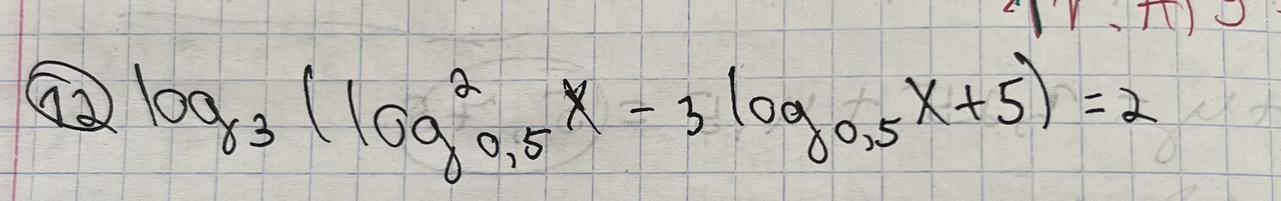 12 log₃ (log²₀,₅ x - 3 log₀,₅ x + 5) = 2